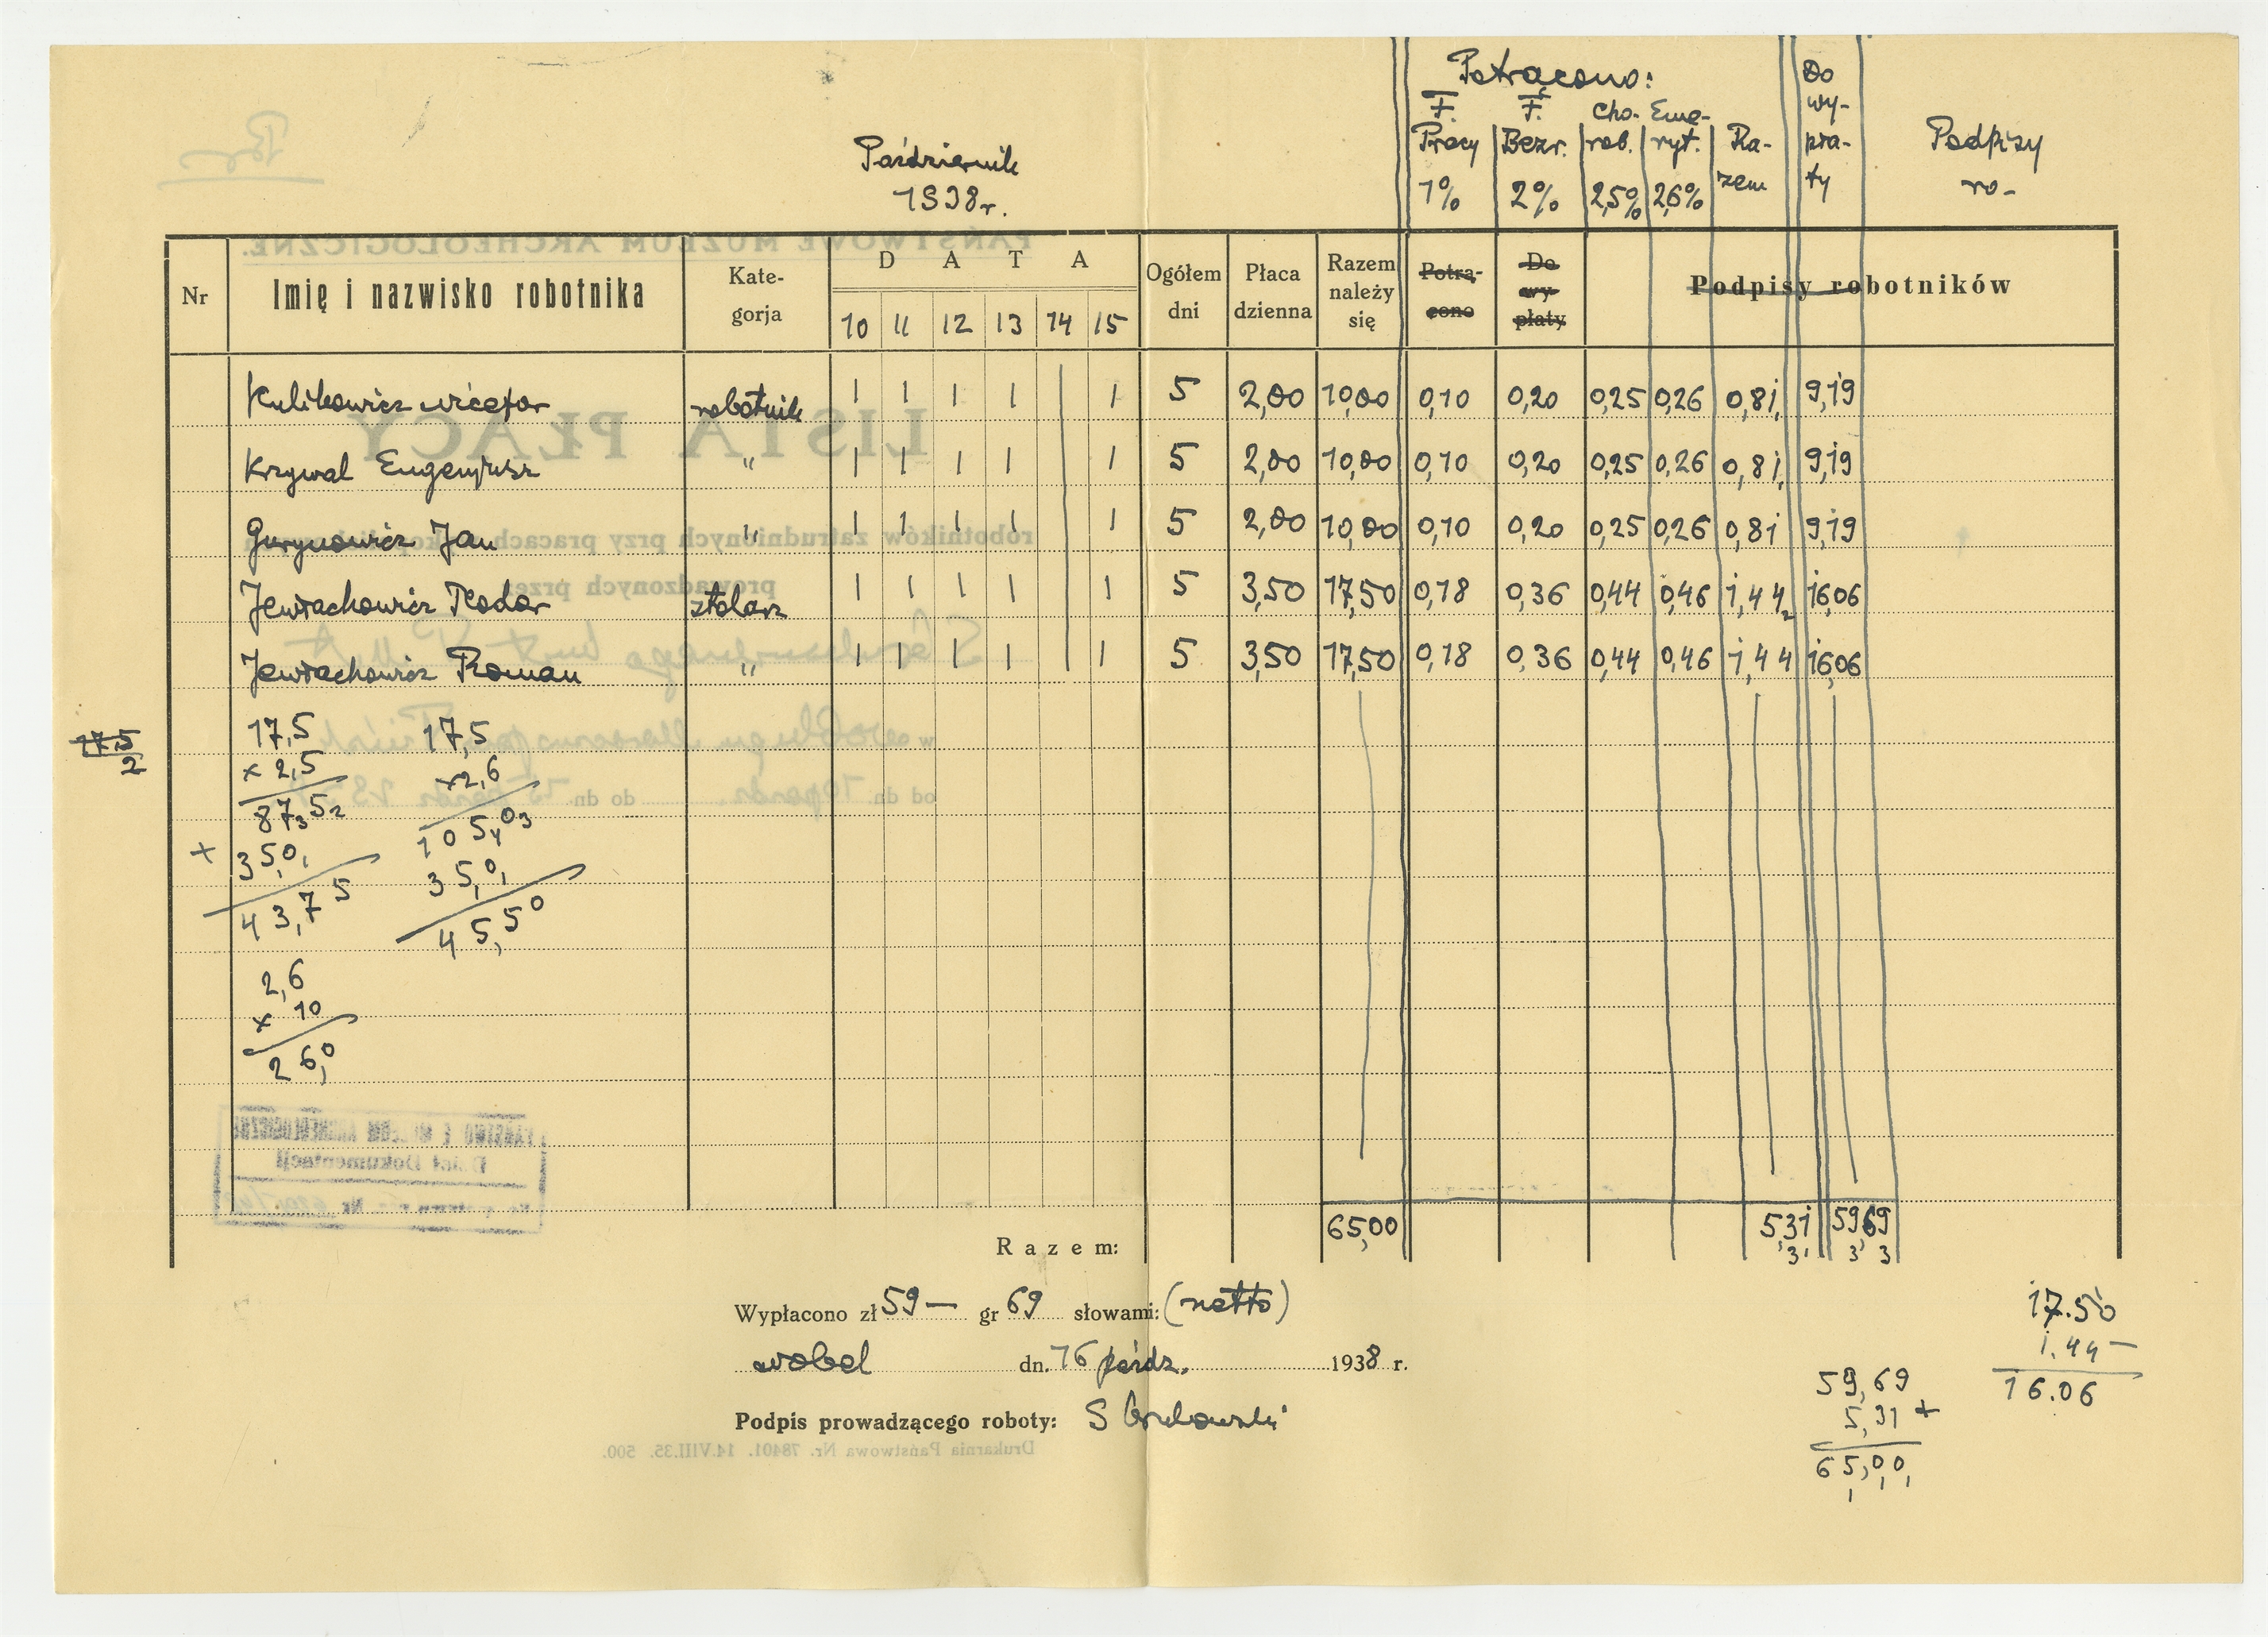 Potrącono:
F. Pracy 1% F. Bezr. 2% Cho- rob. 2,5% Eme- ryt. 2,6% Ra- zem Do wy- pła- ty Podpisy ro-
Październik
1938 r.
Nr Imię i nazwisko robotnika Kate- gorja D A T A Ogółem dni Płaca dzienna Razem należy się Potrą- cono Do wy- płaty Podpisy robotników
10 11 12 13 14 15
Kulikowicz Wictor robotnik 1 1 1 1 1 5 2,00 10,00 0,10 0,20 0,25 0,26 0,81 9,19
Krzywal Eugenjusz " 1 1 1 1 1 5 2,00 10,00 0,10 0,20 0,25 0,26 0,81 9,19
Gurynowicz Jan " 1 1 1 1 1 5 2,00 10,00 0,10 0,20 0,25 0,26 0,81 9,19
Jewłachowicz Teodor stolarz 1 1 1 1 1 5 3,50 17,50 0,18 0,36 0,44 0,46 1,44 16,06
Jewłachowicz Roman " 1 1 1 1 1 5 3,50 17,50 0,18 0,36 0,44 0,46 1,44 16,06
17,5
2
17,5 17,5
× 2,5 ×2,6
87,5 105,0
+ 350 35,0
43,75 45,50
2,6
× 10
26,0
65,00 5,31 59,69
Razem:
Wypłacono zł 59— gr 69 słowami: (netto)
dn. 16 paźdz. 1938 r.
Podpis prowadzącego roboty: S
17.50
1.44 —
16.06
59,69
5,31 +
65,00
PAŃSTWOWE MUZEUM ARCHEOLOGICZNE.
LISTA PŁACY
robotników zatrudnionych przy pracach
prowadzonych przez
w
od dn. 10 paźdz. do dn. 15 paźdz.
Dział Dokumentacji
Nr
Drukarnia Państwowa Nr. 78401. 14.VIII.35. 500.